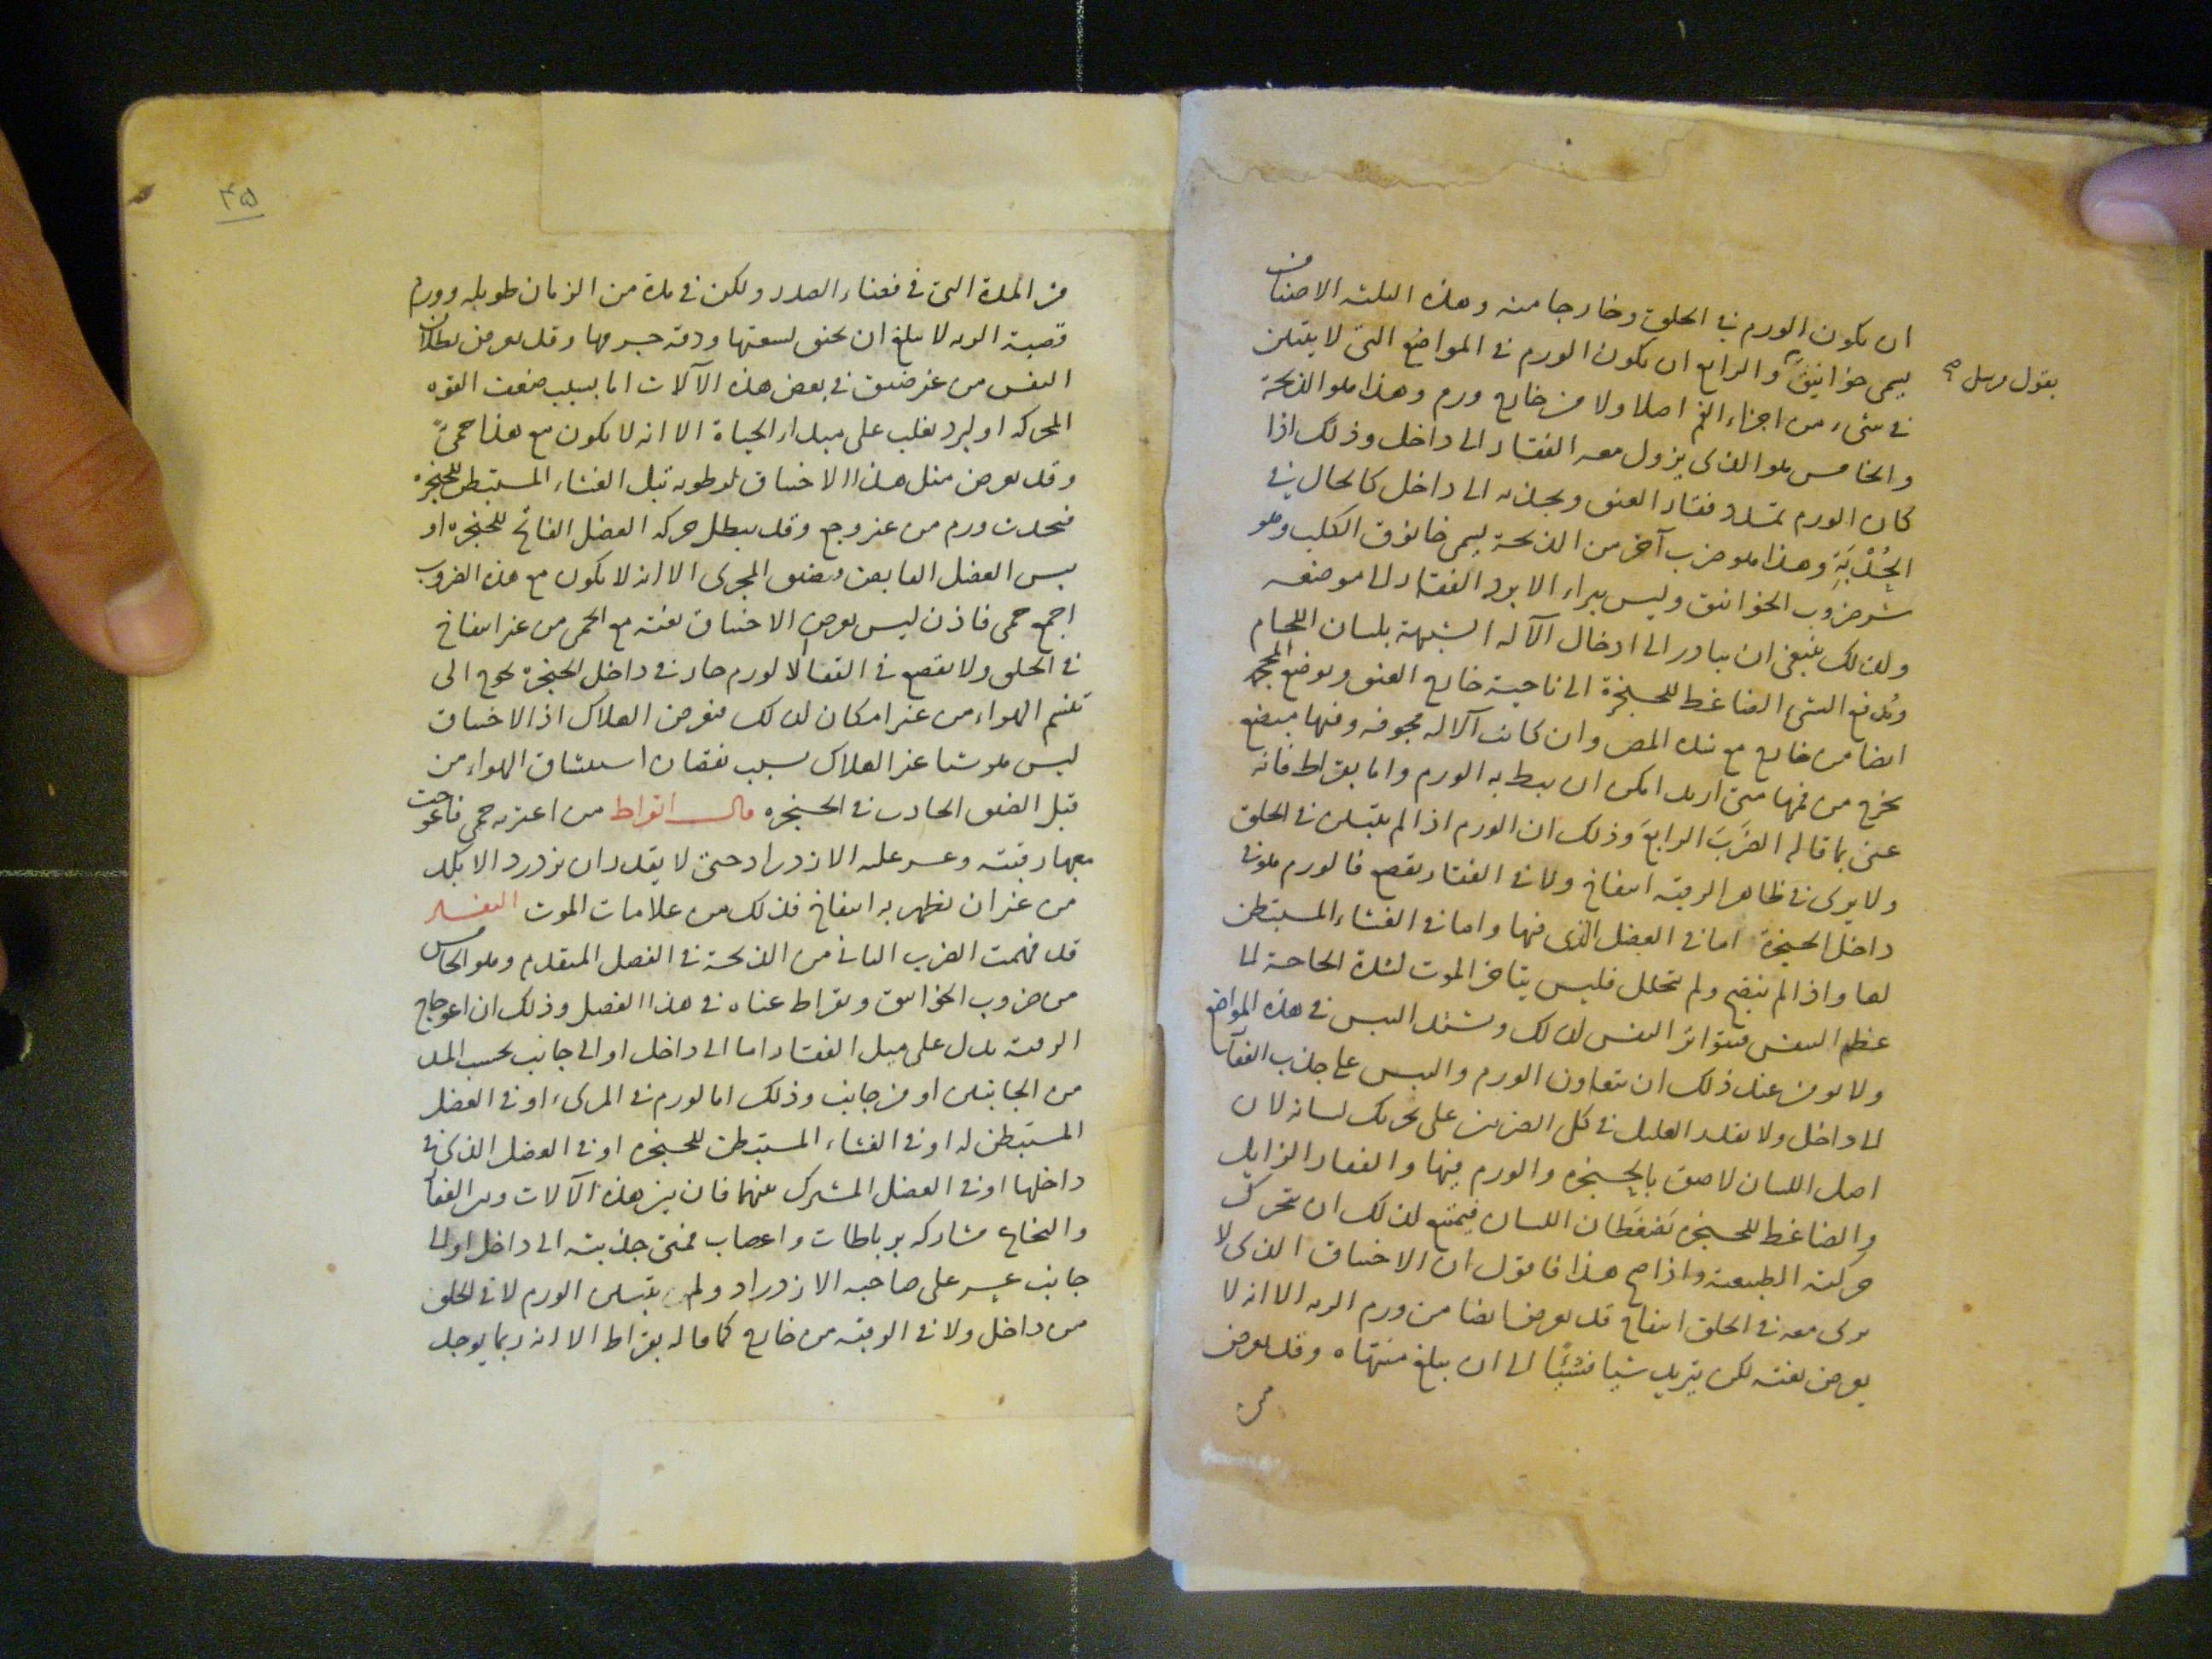 ان يكون الورم في الحلق وخارجا منه وهذه الثلثة الاصناف
يسمى خوانيق والرابع ان يكون الورم في المواضع التى لا يتبين
بقول مرسل صح
في شىء من اجزاء الفم اصلا ولا من خارج ورم وهذا هو الذبحة
والخامس هو الذى يزول معه الفقار الى داخل وذلك اذا
كان الورم تمدد فقار العنق ويجذبه الى داخل كالحال في
الحُدْبَةِ وهذا هو ضرب آخر من الذبحة يسمى خانوق الكلب وهو
شر ضروب الخوانيق وليس يبراء الا برد الفقار الى موضعه
ولذلك ينبغى ان يبادر الى ادخال الآله الشبيهة بلسان اللجام
وتدفع الشىء الضاغط للحنجرة الى ناحية خارج العنق وتوضع المحجمه
ايضا من خارج مع شدة المص وان كانت الآلة مجوفه وفيها مبضع
يخرج من فمها متى اريد امكن ان يبط به الورم واما بقراط فانه
عنى بما قاله الضَربَ الرابعَ وذلك ان الورم اذا لم يتبين في الحلق
ولا يرى في ظاهر الرقبة انتفاخ ولا في الفقار تقصع فالورم هو في
داخل الحنجرة اما في العضل الذى فيها واما في الغشاء المستبطن
لها واذا لم ينضج ولم يتحلل فليس يتاخر الموت لشدة الحاجة الى
عظم النفس فيتواتر النفس لذلك ويشتد اليبس في هذه المواضع
ولا يومن عند ذلك ان يتعاون الورم واليبس على جذب الفقار
الى داخل ولا يقدر العليل في كل الضربين على تحريك لسانه لان
اصل اللسان لاصق بالحنجره والورم فيها والفقار الزايل
والضاغط للحنجره يَضغَطَان اللسان فيمتنع لذلك ان يتحرك
حركته الطبيعية واذا صح هذا فاقول ان الاختناق الذى لا
يرى معه في الحلق انتفاخ قد يعرض ايضا من ورم الريه الا انه لا
يعرض بغته لكن يتزيد شيا فشيًا الى ان يبلغ منتهاه وقد يعرض
من
٣٥
من المدة التى في فضاء الصدر ولكن في مدة من الزمان طويله وورم
قصبة الريه لا يبلغ ان يخنق لسعتها ودقة جرمها وقد يعرض بطلان
النفس من غير ضيق في بعض هذه الآلات اما بسبب ضعف القوه
المحركه او لبرد يغلب على مبداء الحياة الا انه لا يكون مع هذا حمىً
وقد يعرض مثل هذا الاختناق لرطوبة تبل الغشاء المستبطن للحنجرة
فيحدث ورم من غير وجع وقد يبطل حركه العضل الفاتح للحنجره او
يبس العضل القابض ويضيق المجرى الا انه لا يكون مع هذه الضروب
اجمع حمى فاذن ليس يعرض الاختناق بغته مع الحمى من غير انتفاخ
في الحلق ولا تقصع في القفا الا لورم حار في داخل الحنجرة يحوج الى
تنسم الهواء من غير امكان لذلك فيعرض الهلاك اذ الاختناق
ليس هو شيا غير الهلاك بسبب نقصان استنشاق الهواء من
قبل الضيق الحادث في الحنجره قال ابقراط من اعترته حمى فاعوجت
معها رقبته وعسر عليه الازدراد حتى لا يقدر ان يزدرد الا بكد
من غير ان يظهر به انتفاخ فذلك من علامات الموت التفسير
قد فهمت الضرب الثانى من الذبحة في الفصل المتقدم وهو الخامس
من ضروب الخوانيق وبقراط عناه في هذا الفصل وذلك ان اعوجاج
الرقبة يدل على ميل الفقار اما الى داخل او الى جانب بحسب المد
من الجانبين او من جانب وذلك اما لورم في المرىء او في العضل
المستبطن له او في الغشاء المستبطن للحنجره او في العضل الذى في
داخلها او في العضل المشترك بينهما فان بين هذه الآلات وبين الفقار
والنخاع مشاركه برباطات واعصاب فمتى جذبته الى داخل او الى
جانب عسر على صاحبه الازدراد ولم يتبين الورم لا في الحلق
من داخل ولا في الرقبة من خارج كما قاله بقراط الا انه ربما يوجد